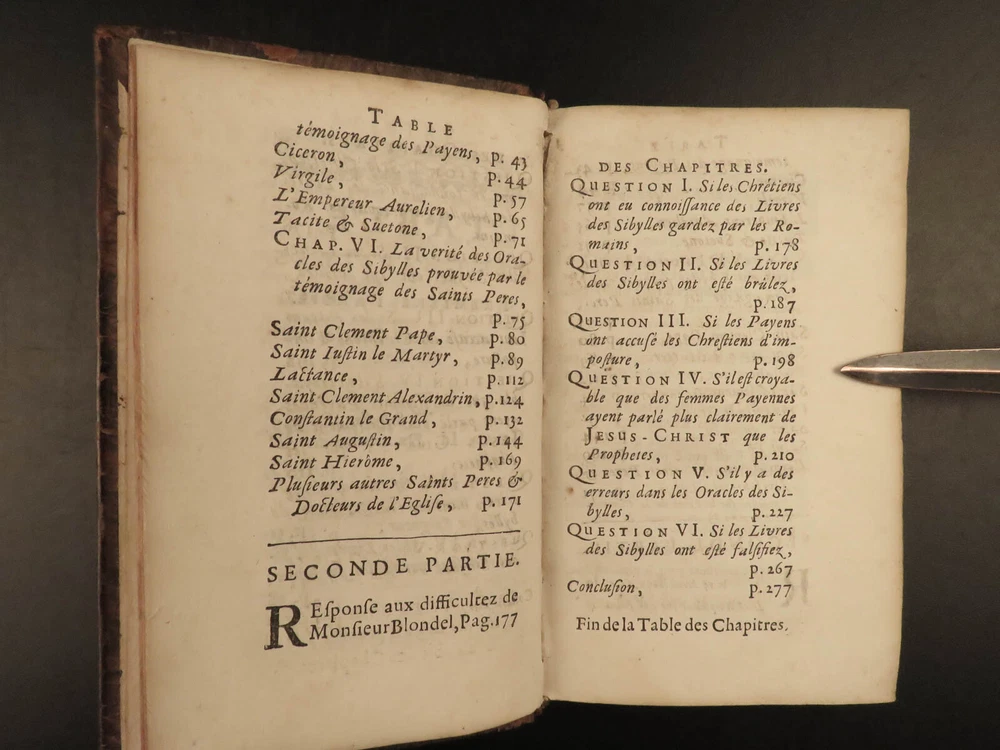 TABLE
témoignage des Payens, p. 43
Ciceron, p. 44
Virgile, p. 57
L'Empereur Aurelien, p. 65
Tacite & Suetone, p. 71
CHAP. VI. La verité des Ora-
cles des Sibylles prouvée par le
témoignage des Saints Peres,
p. 75
Saint Clement Pape, p. 80
Saint Iuſtin le Martyr, p. 89
Lactance, p. 112
Saint Clement Alexandrin, p. 124
Conſtantin le Grand, p. 132
Saint Auguſtin, p. 144
Saint Hierôme, p. 169
Pluſieurs autres Saints Peres &
Docteurs de l'Egliſe, p. 171
SECONDE PARTIE.
REſponſe aux difficultez de
Monſieur Blondel, Pag. 177
DES CHAPITRES.
QUESTION I. Si les Chrétiens
ont eu connoiſſance des Livres
des Sibylles gardez par les Ro-
mains, p. 178
QUESTION II. Si les Livres
des Sibylles ont eſté brûlez,
p. 187
QUESTION III. Si les Payens
ont accuſé les Chreſtiens d'im-
poſture, p. 198
QUESTION IV. S'il eſt croya-
ble que des femmes Payennes
ayent parlé plus clairement de
JESUS-CHRIST que les
Prophetes, p. 210
QUESTION V. S'il y a des
erreurs dans les Oracles des Si-
bylles, p. 227
QUESTION VI. Si les Livres
des Sibylles ont eſté falſifiez,
p. 267
Concluſion, p. 277
Fin de la Table des Chapitres.